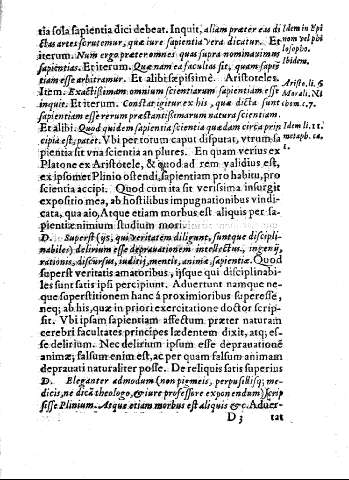 tia sola sapientia dici debeat. Inquit, aliam præter eas di
ctas artes scrutemur, quæ iure sapientia vera dicatur. Et
iterum. Num ergo præter omnes quas supra nominauimus
sapientias. Et iterum. Quænam ea facultas sit, quam sapiē
tiam esse arbitramur. Et alibi sæpissimè. Aristoteles.
Item. Exactissimam omnium scientiarum sapientiam esse
inquit. Et iterum. Constat igitur ex his, quæ dicta sunt
sapientiam esse rerum præstantissimarum natura scientiam.
Et alibi. Quod quidem sapientia scientia quædam circa prin
cipia est, patet. Vbi per totum caput disputat, vtrum sa
pientia sit vna scientia an plures. En quam verius ex
Platone ex Aristotele, & quod ad rem validius est,
ex ipsomet Plinio ostendi, sapientiam pro habitu, pro
scientia accipi. Quod cum ita sit verissima insurgit
expositio mea, ab hostilibus impugnationibus vindi-
cata, qua aio, Atque etiam morbus est aliquis per sa-
pientiæ nimium studium mori.
D. Superst (ijs, qui veritatem diligunt, suntque discipli-
nabiles) delirium esse deprauationem intellectus, ingenij,
rationis, discursus, iudicij, mentis, animæ, sapientiæ. Quod
superst veritatis amatoribus, ijsque qui disciplinabi-
les sunt satis ipsi percipiunt. Aduertunt namque ne-
que superstitionem hanc á proximioribus superesse,
neq; ab his, quæ in priori exercitatione doctor scrip-
sit. Vbi ipsam sapientiam affectum præter naturam
cerebri facultates principes lædentem dixit, atq; es-
se delirium. Nec delirium ipsum esse deprauationē
animæ; falsum enim est, ac per quam falsum animam
deprauati naturaliter posse. De reliquis satis superius
D. Eleganter admodum (non pigmeis, perpusillisq; me-
dicis, ne dicā theologo, & iure professore exponendum) scrip
sisse Plinium. Atque etiam morbus est aliquis &c. Aduer-
D 3 tat
Idem in Epi
nom vel phi
losopho.
Ibidem.
Aristo. li. 6
Morali. Ni
com. c. 7.
Idem li. 11.
metaph. ca.
1.